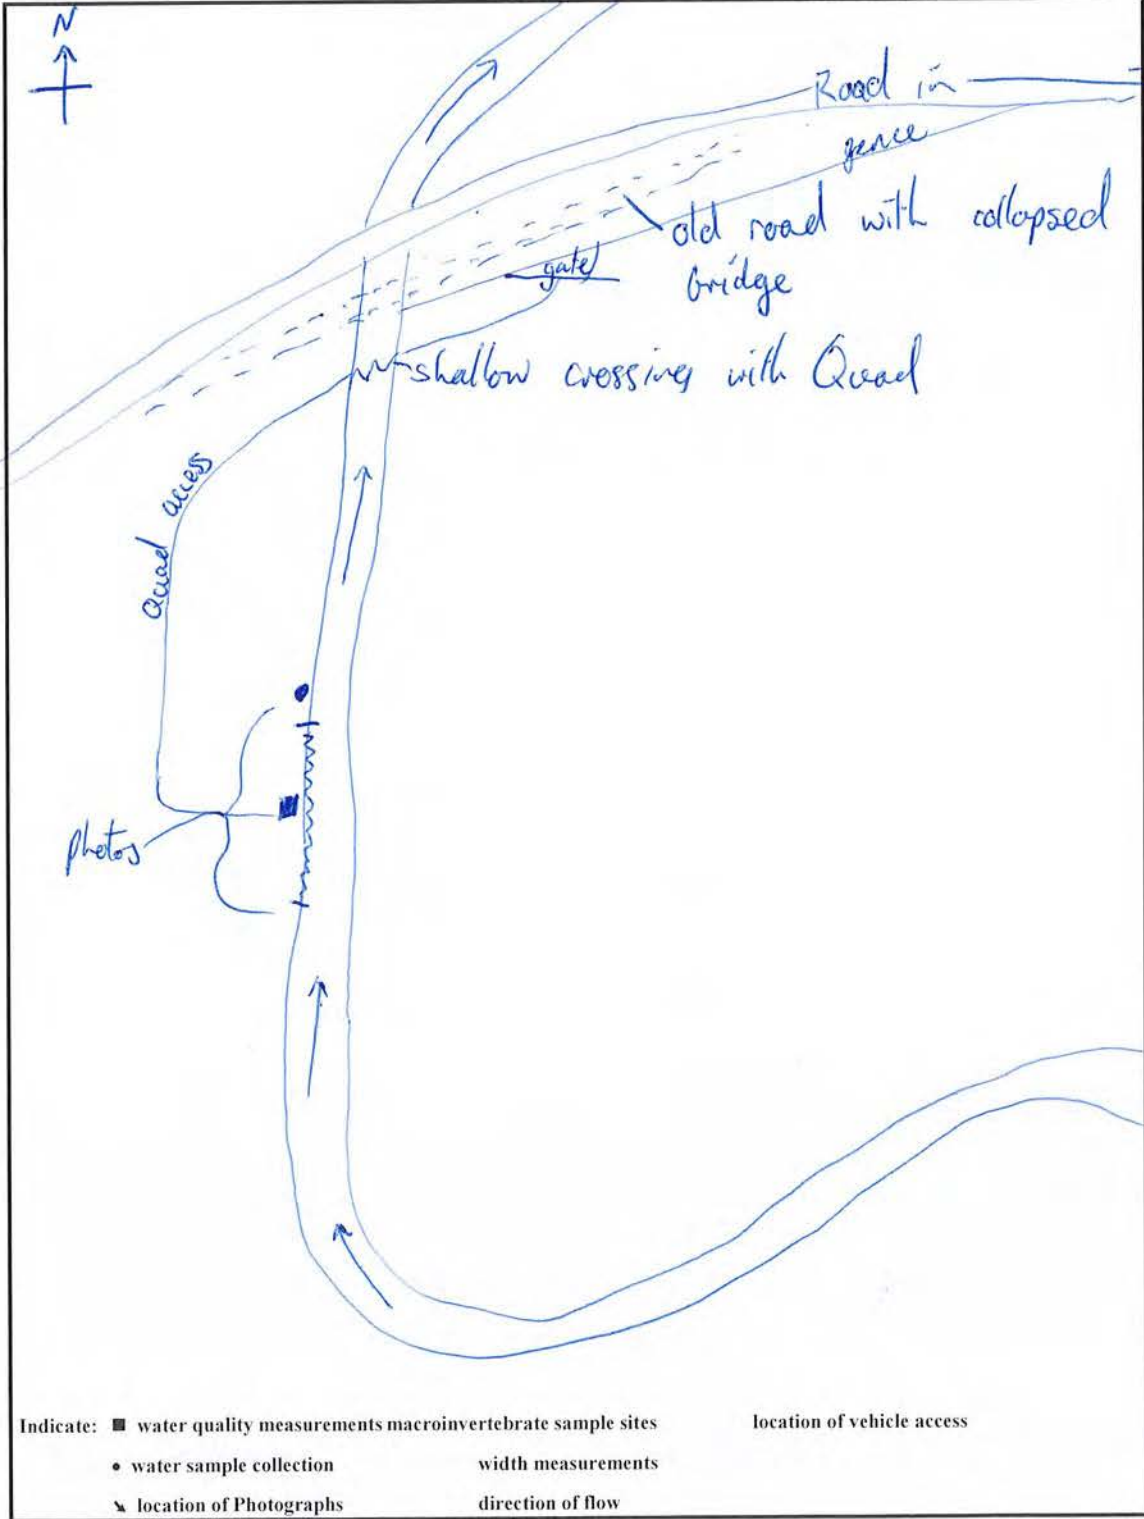 N
Road in
fence
old road with collapsed
bridge
gate
shallow crossing with Quad
Quad access
photos
Indicate: ■ water quality measurements macroinvertebrate sample sites location of vehicle access
• water sample collection width measurements
↘ location of Photographs direction of flow